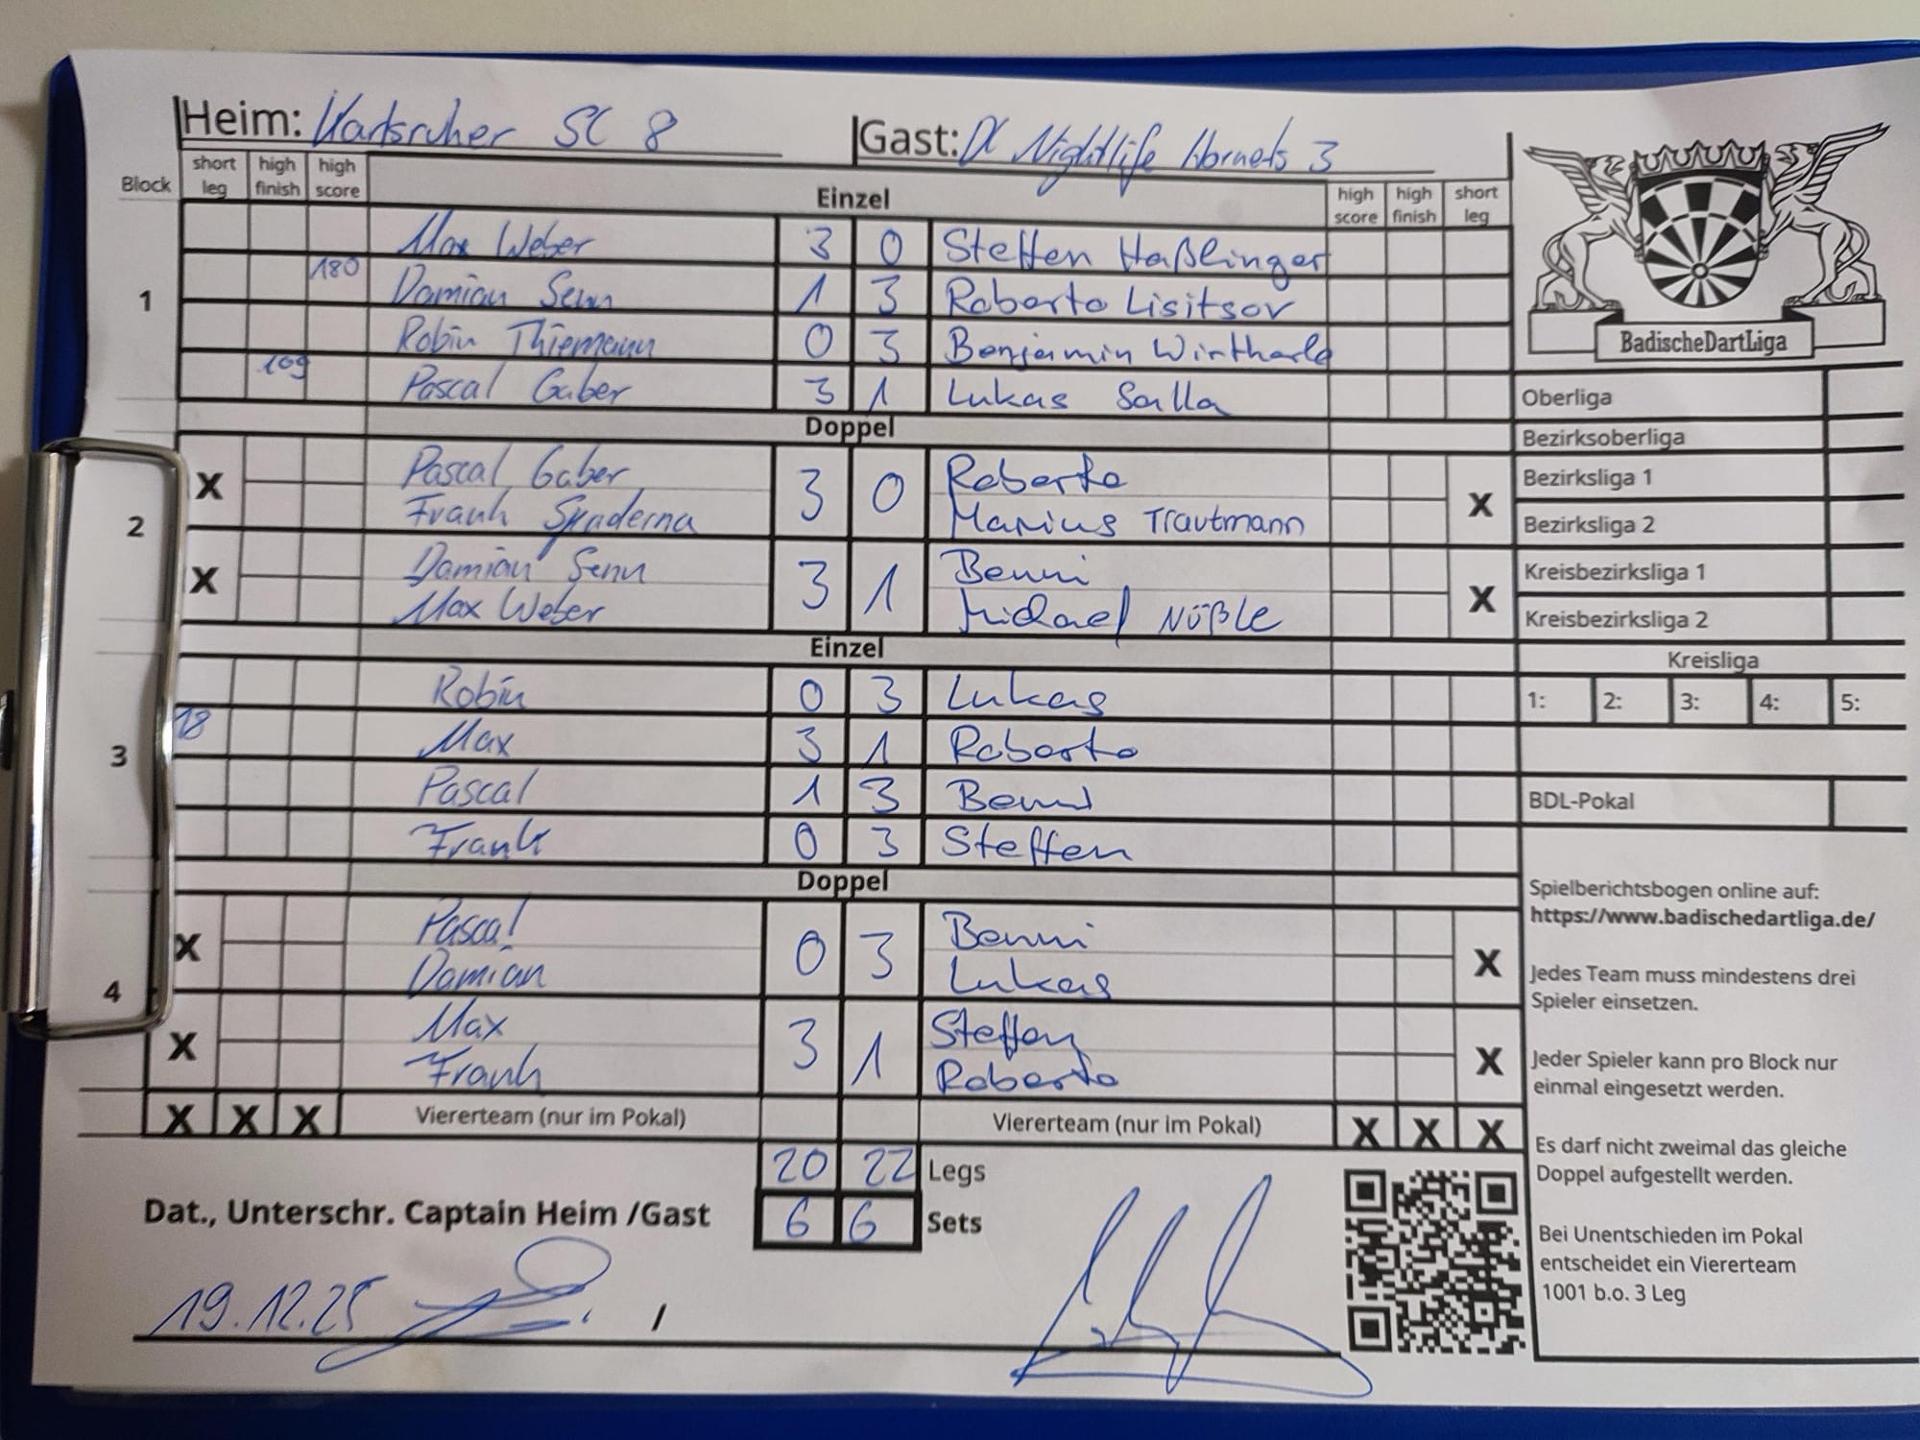 Heim: Karlsruher SC 8 Gast: DC Nightlife Hornets 3
Block short leg high finish high score Einzel high score high finish short leg
1
Max Weber 3 0 Steffen Haßlinger
180 Damian Senn 1 3 Roberto Lisitsov
Robin Thiemann 0 3 Benjamin
109 Pascal Gaber 3 1 Lukas Salla
Doppel
2
X Pascal Gaber 3 0 Roberto X
Frank Spaderna Marius Trautmann
X Damian Senn 3 1 Benni X
Max Weber Michael Nüßle
Einzel
3
Robin 0 3 Lukas
18 Max 3 1 Roberto
Pascal 1 3 Benni
Frank 0 3 Steffen
Doppel
4
X Pascal 0 3 Benni X
Damian Lukas
X Max 3 1 Steffen X
Frank Roberto
X X X Viererteam (nur im Pokal) Viererteam (nur im Pokal) X X X
20 22 Legs
6 6 Sets
Dat., Unterschr. Captain Heim /Gast
19.12.25 /
BadischeDartLiga
Oberliga
Bezirksoberliga
Bezirksliga 1
Bezirksliga 2
Kreisbezirksliga 1
Kreisbezirksliga 2
Kreisliga
1: 2: 3: 4: 5:
BDL-Pokal
Spielberichtsbogen online auf:
https://www.badischedartliga.de/
Jedes Team muss mindestens drei
Spieler einsetzen.
Jeder Spieler kann pro Block nur
einmal eingesetzt werden.
Es darf nicht zweimal das gleiche
Doppel aufgestellt werden.
Bei Unentschieden im Pokal
entscheidet ein Viererteam
1001 b.o. 3 Leg